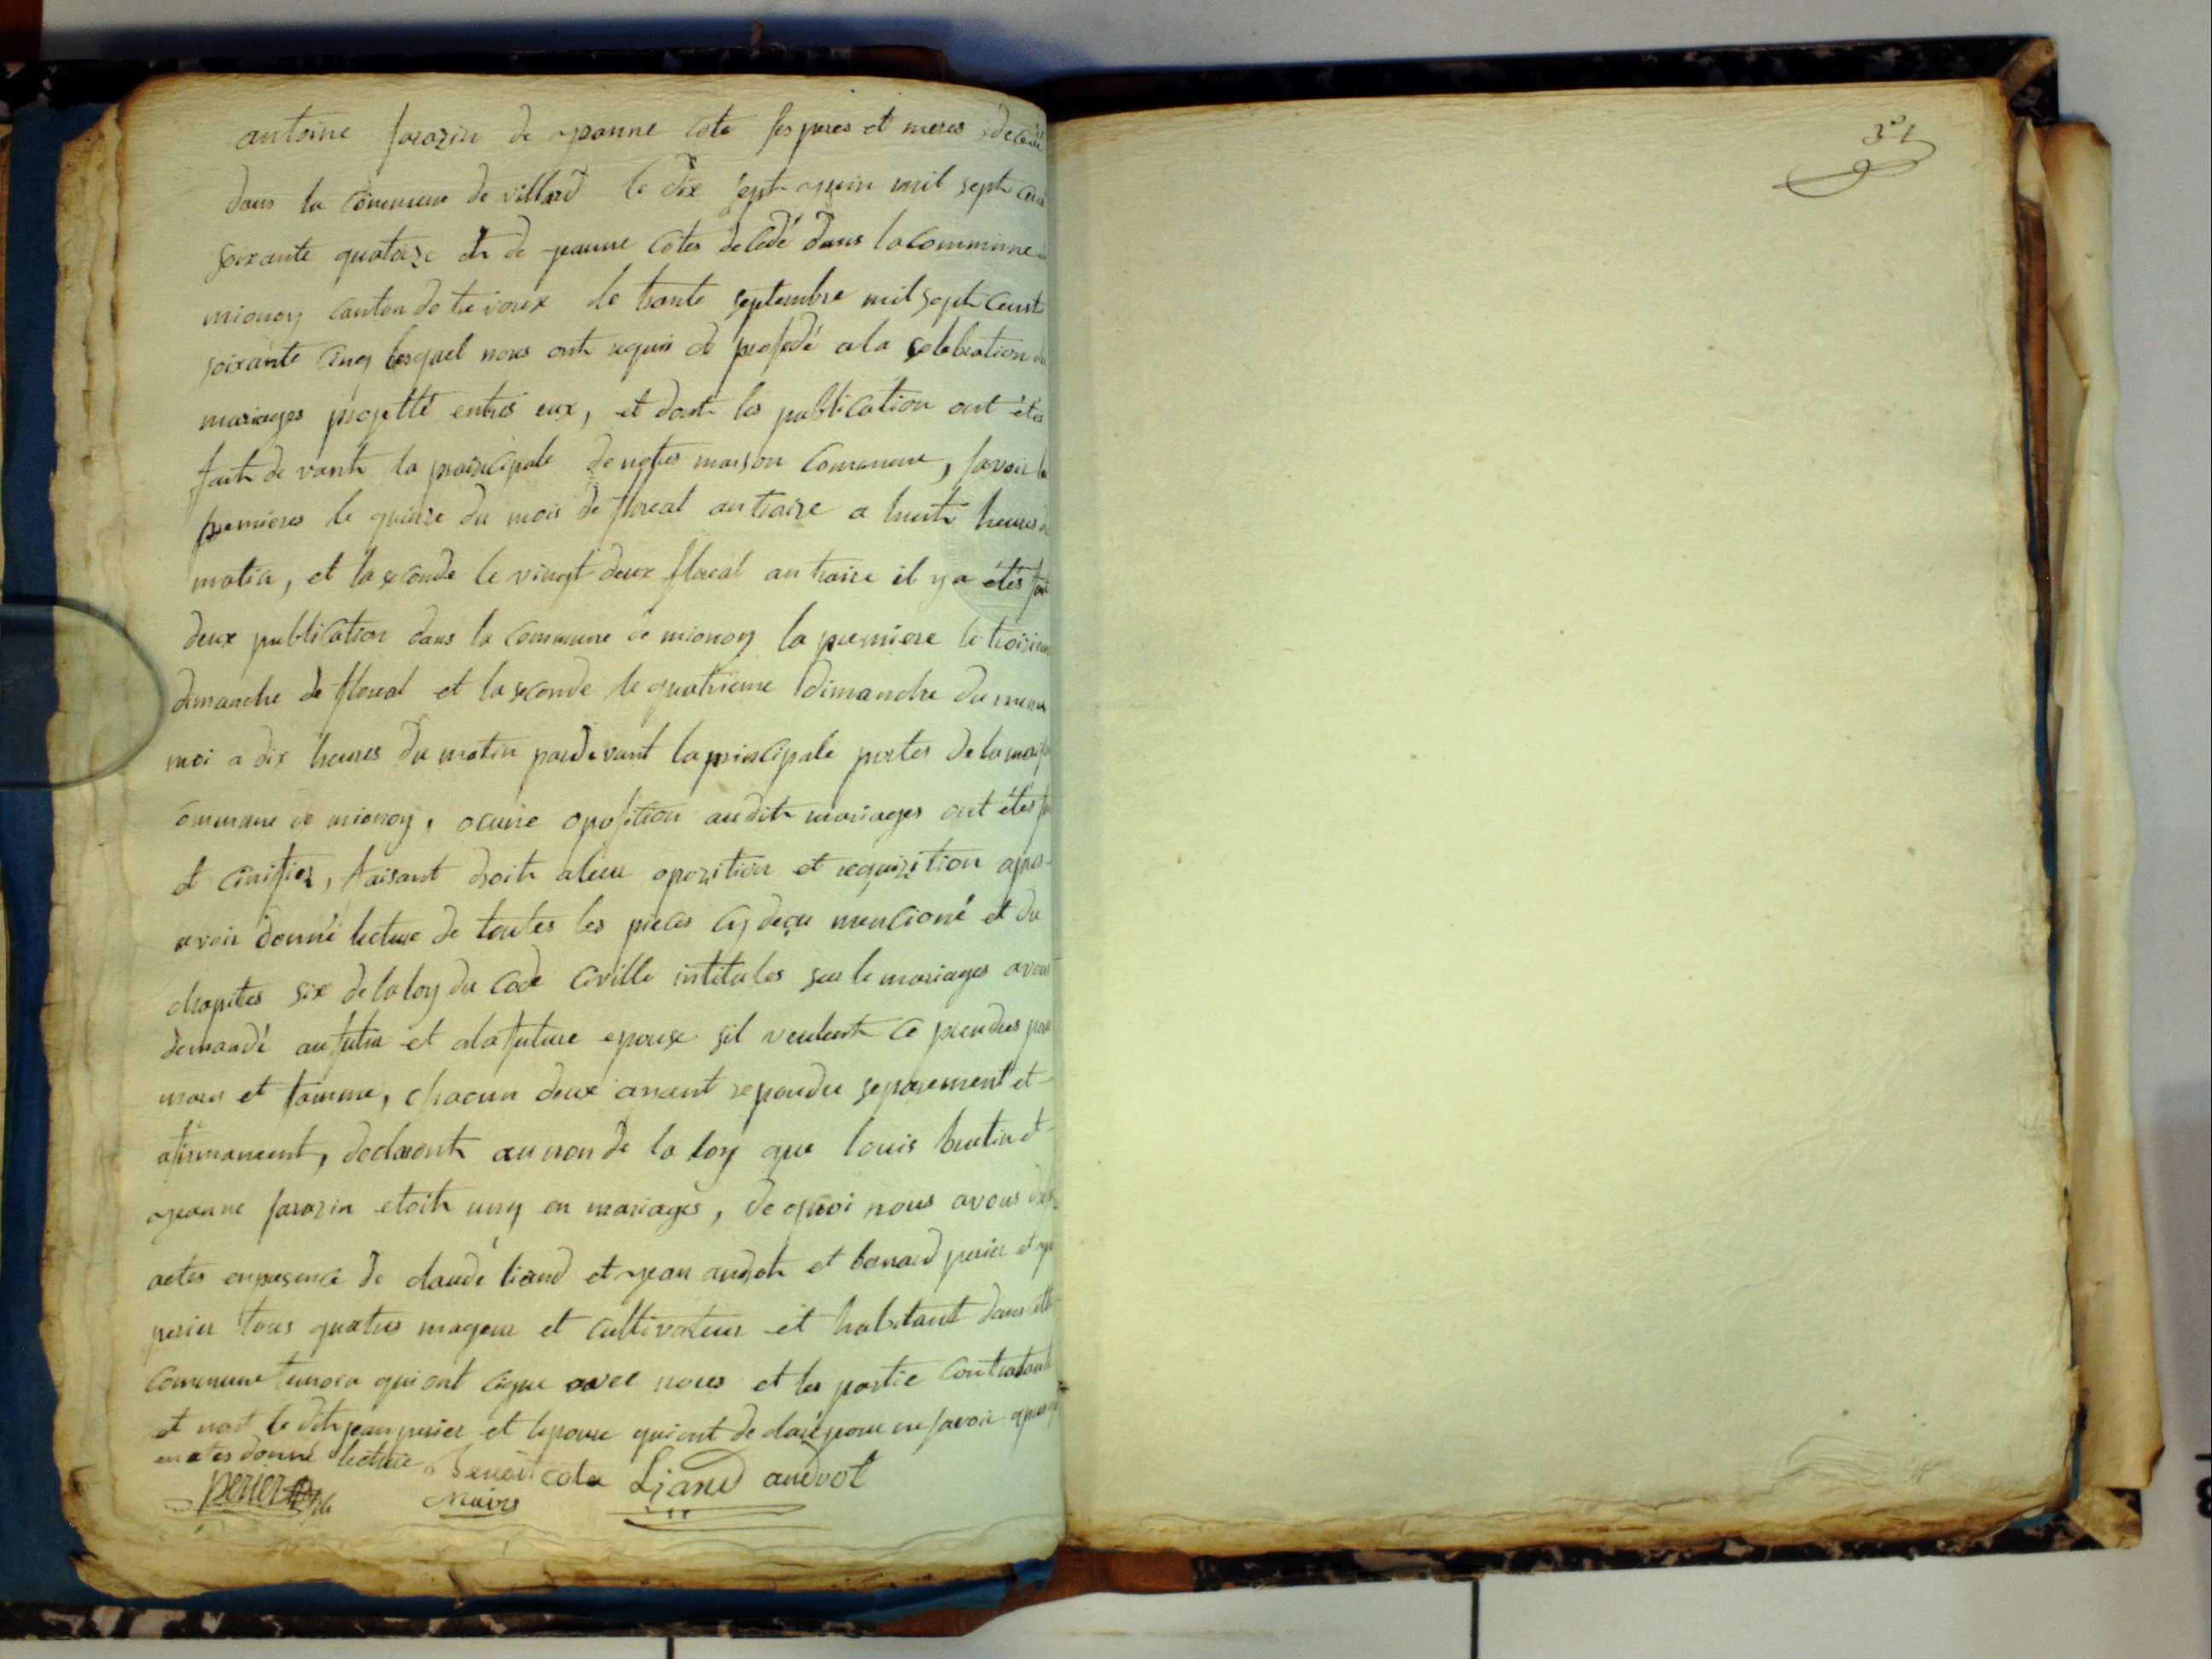 antoine sarazin de jeanne cote ses peres et meres decedé
dans la commune de villard le dix sept juin mil sept cent
soixante quatorze et de jeanne cotes decedé dans la commune
mionoy canton de trevoux le trante septembre mil sept cent
soixante cinq lesquel nous ont requis de prosedé a la celebration du
mariages projetté entres eux, et dont les publication ont étés
fait de vant la prinicipale de notres maison commune, savoir la
premieres le quinze du mois de floreal an traize a huit heures du
matin, et la seconde le vingt deux floreal an traize il y a étés fait
deux publication dans la commune de mionoy la premiere le troisieme
dimanche de floreal et la seconde le quatrieme dimanche du meme
moi a dix heures du matin pardevant la principale portes de la maison
commune de mionoy, ocune oposition audit mariages ont étés
et cinifiez, faisant droit a leur oposition et requizition apres
avoir donné lecture de toutes les pieces cy deçu mencioné et du
chapitres six de la loy du code civille intitules sur le mariages avons
demandé au futur et a la future epouse sil veulent ce prendres pour
maris et famme, chacun deux ayant repondu separement et
afirmament, declaront au nom de la loy que louis brutin et
jeanne sarazin etoit uny en mariages, de quoi nous avons
actes en presence de claude liand et jean audot et benard perier et jean
perier tous quatres mageur et cultivateur et habitant dans cette
commune temoin qui ont cigne avec nous et les partie contratante
et non le dit jean perier et lepouse qui ont declaré pour ne savoir apres
en a tes donné lecture
perier Benoit cote Liand audvot
Maire
31